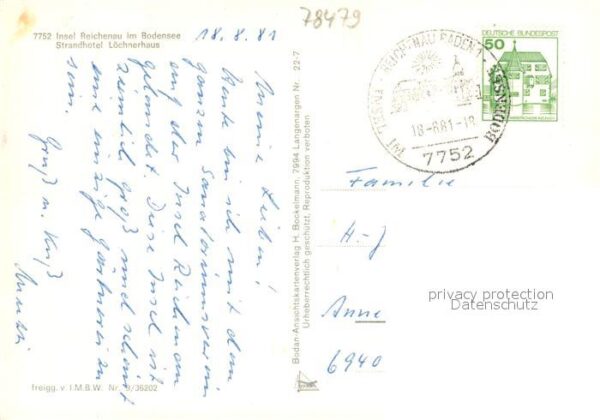 78479
7752 Insel Reichenau im Bodensee
Strandhotel Löchnerhaus
18.8.81
Meine Lieben!
Heute bin ich mit dem
ganzen Sanatoriumsverein
auf der Insel Reichenau
gelandet. Diese Insel ist
ziemlich groß und scheint
eine einzige Gärtnerei zu
sein.
Gruß u. Kuß
Freigg. v. I.M.B.W. Nr. 9/36202
Bodan-Ansichtskartenverlag H. Bockelmann, 7994 Langenargen Nr. 22-7
Urheberrechtlich geschützt, Reproduktion verboten
INSEL REICHENAU BADEN
IM BODENSEE
18-8.81-18
7752
DEUTSCHE BUNDESPOST
50
Familie
H-J
Anne
6940
privacy protection
Datenschutz